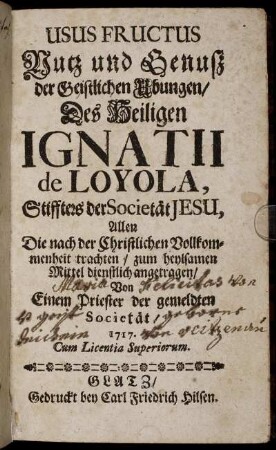 USUS FRUCTUS
Nutz und Genuß
der Geistlichen Ubungen/
Des Heiligen
IGNATII
de LOYOLA,
Stiffters der Societät JESU,
Allen
Die nach der Christlichen Vollkom-
menheit trachten / zum heylsamen
Mittel dienstlich angetragen /
Von
Maria Felicitas Von
Einem Priester der gemeldten
Societät /
geborne
1717.
Von
Cum Licentia Superiorum.
GLATZ /
Gedruckt bey Carl Friedrich Hilsen.